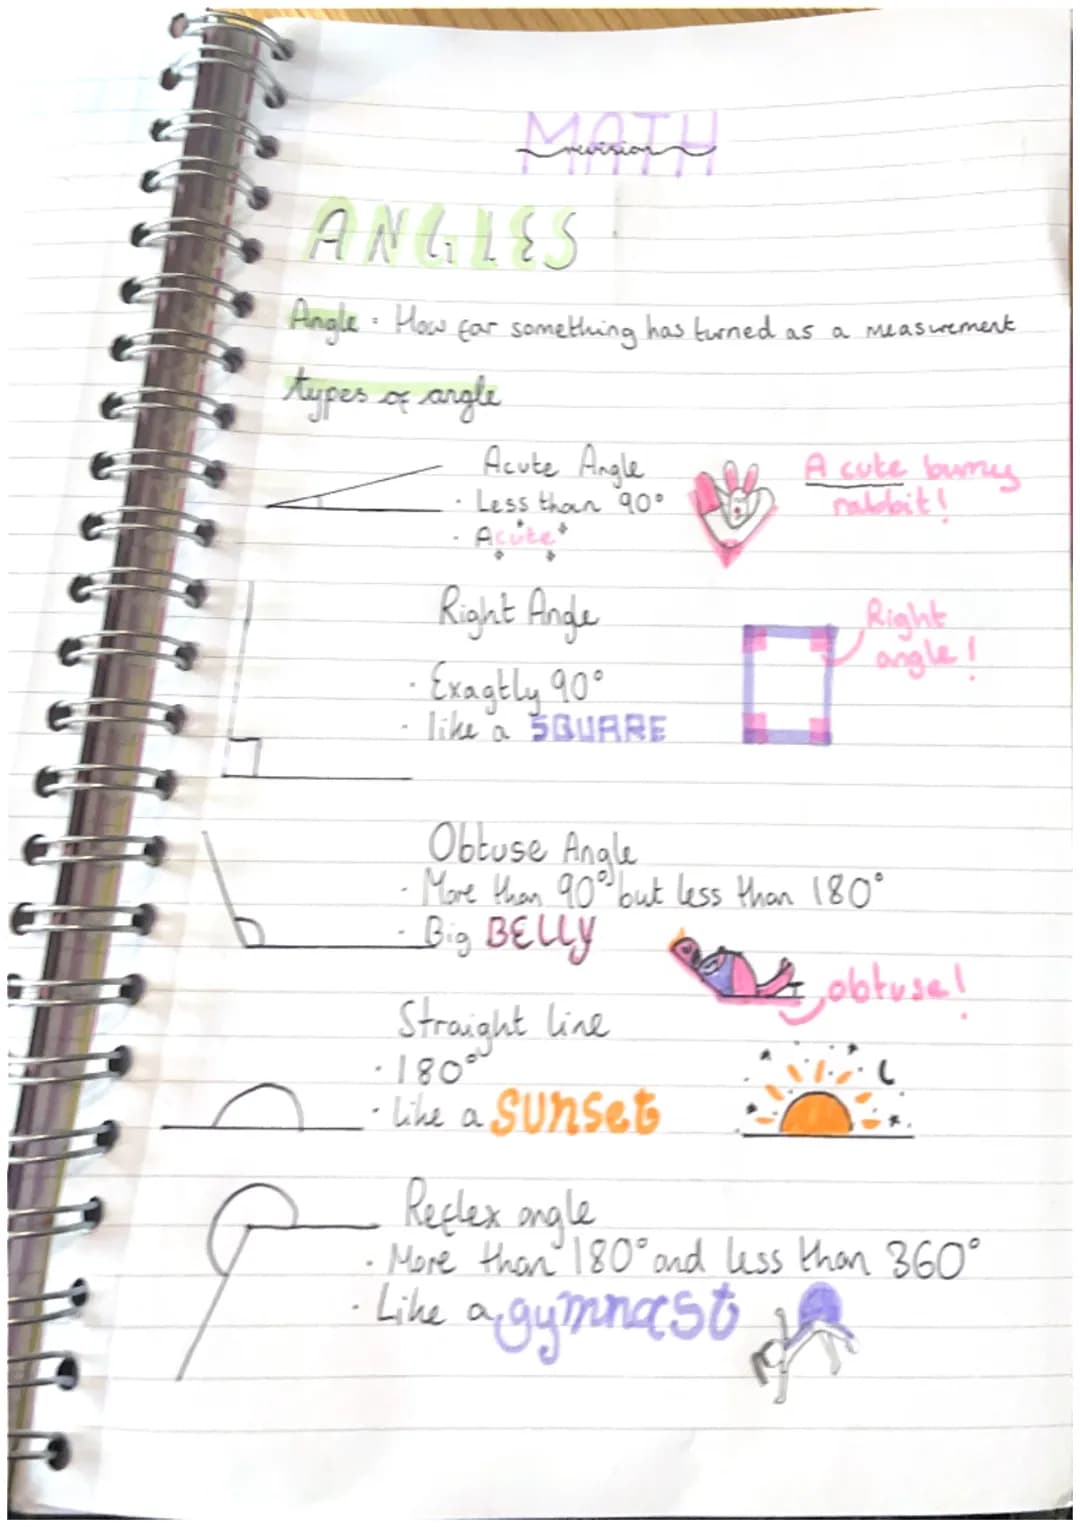 MATH
revision
ANGLES
Angle = How far something has turned as a measurement
types of angle
Acute Angle
· Less than 90°
· Acute
A cute bunny
rabbit!
Right Angle
· Exagtly 90°
· like a SQUARE
Right
angle!
Obtuse Angle
· More than 90° but less than 180°
· Big BELLY
obtuse!
Straight line
· 180°
· like a SUNSET
Reflex angle
· More than 180° and less than 360°
· Like a gymnast